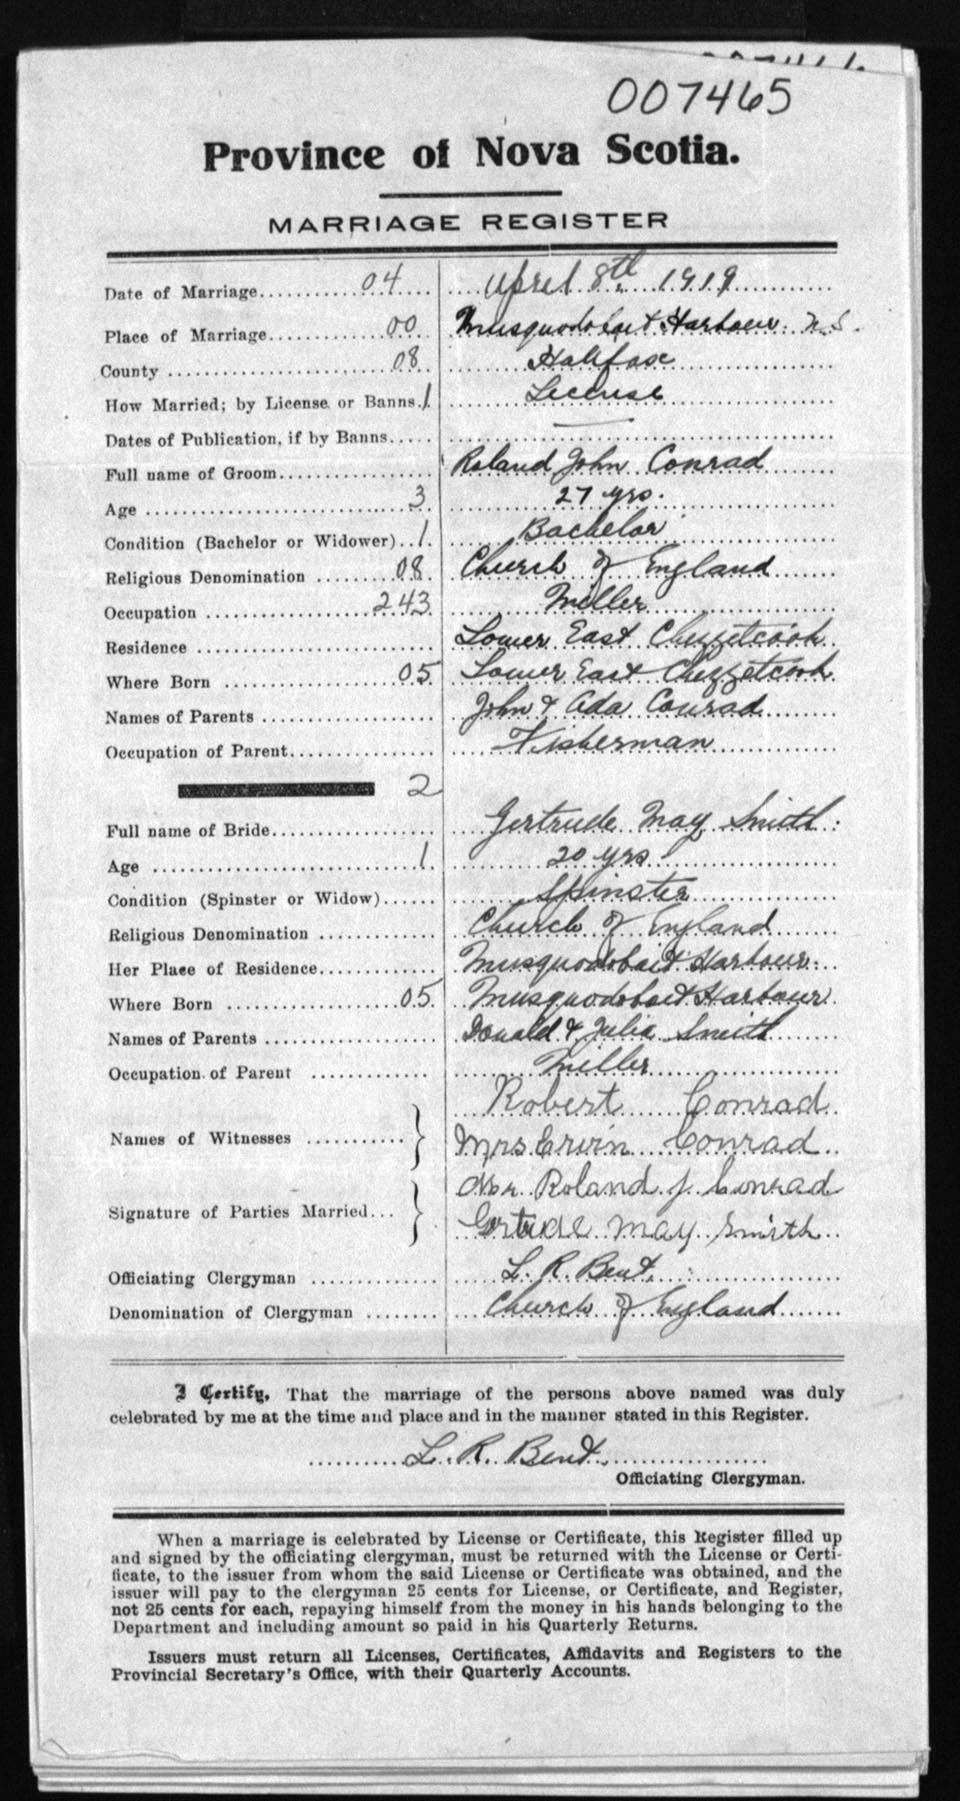 007465
Province of Nova Scotia.
MARRIAGE REGISTER
Date of Marriage 04 April 8th 1919
Place of Marriage 00 Musquodoboit Harbour N.S.
County 08 Halifax
How Married; by License or Banns. 1 License
Dates of Publication, if by Banns —
Full name of Groom Roland John Conrad
Age 3 27 yrs.
Condition (Bachelor or Widower) 1 Bachelor
Religious Denomination 08 Church of England
Occupation 243 Miller
Residence Lower East Chezzetcook
Where Born 05 Lower East Chezzetcook
Names of Parents John & Ada Conrad
Occupation of Parent Fisherman
2
Full name of Bride Gertrude May Smith
Age 1 20 yrs
Condition (Spinster or Widow) Spinster
Religious Denomination Church of England
Her Place of Residence Musquodoboit Harbour
Where Born 05 Musquodoboit Harbour
Names of Parents Donald & Julia Smith
Occupation of Parent Miller
Names of Witnesses } Robert Conrad
Mrs Ervin Conrad
Signature of Parties Married } Mr Roland J Conrad
Gertude May Smith
Officiating Clergyman L. R. Bent.
Denomination of Clergyman Church of England
I Certify, That the marriage of the persons above named was duly
celebrated by me at the time and place and in the manner stated in this Register.
L. R. Bent
Officiating Clergyman.
When a marriage is celebrated by License or Certificate, this Register filled up
and signed by the officiating clergyman, must be returned with the License or Certi-
ficate, to the issuer from whom the said License or Certificate was obtained, and the
issuer will pay to the clergyman 25 cents for License, or Certificate, and Register,
not 25 cents for each, repaying himself from the money in his hands belonging to the
Department and including amount so paid in his Quarterly Returns.
Issuers must return all Licenses, Certificates, Affidavits and Registers to the
Provincial Secretary's Office, with their Quarterly Accounts.